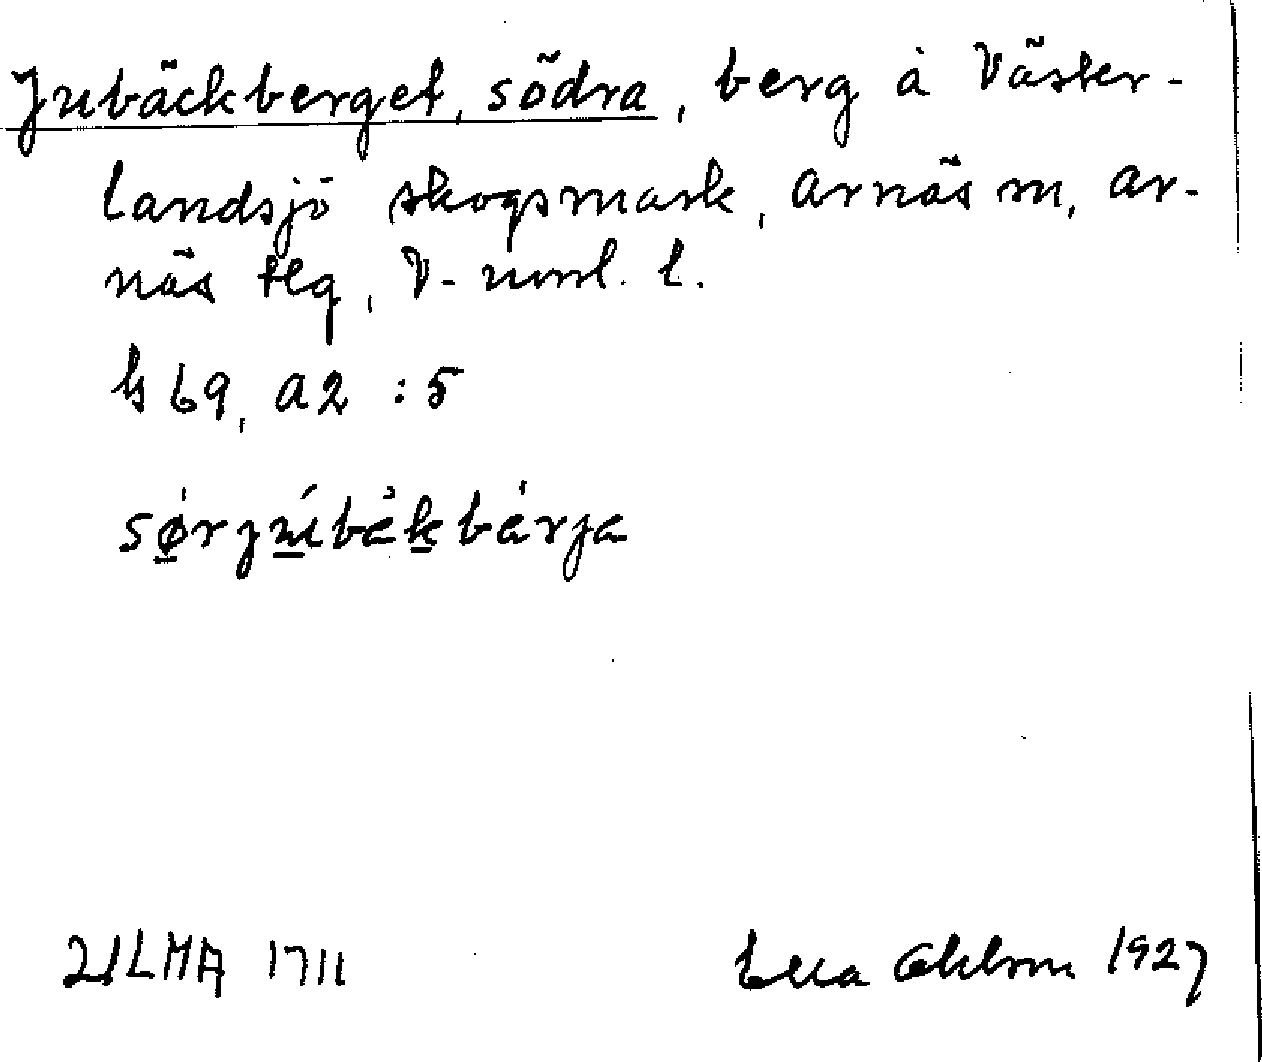 Jubäckberget, södra, berg å Väster-
landsjö skogsmark, Arnäs sn, Ar-
näs tlg, V-norrl. l.
69, A2 : 5
ULMA 1711 Ella Ohlson 1927